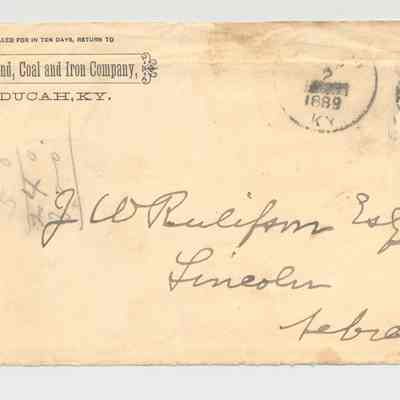 LLED FOR IN TEN DAYS, RETURN TO
nd, Coal and Iron Company,
DUCAH, KY.
2
1889
KY.
J W Rulifson Esq
Lincoln
Nebra